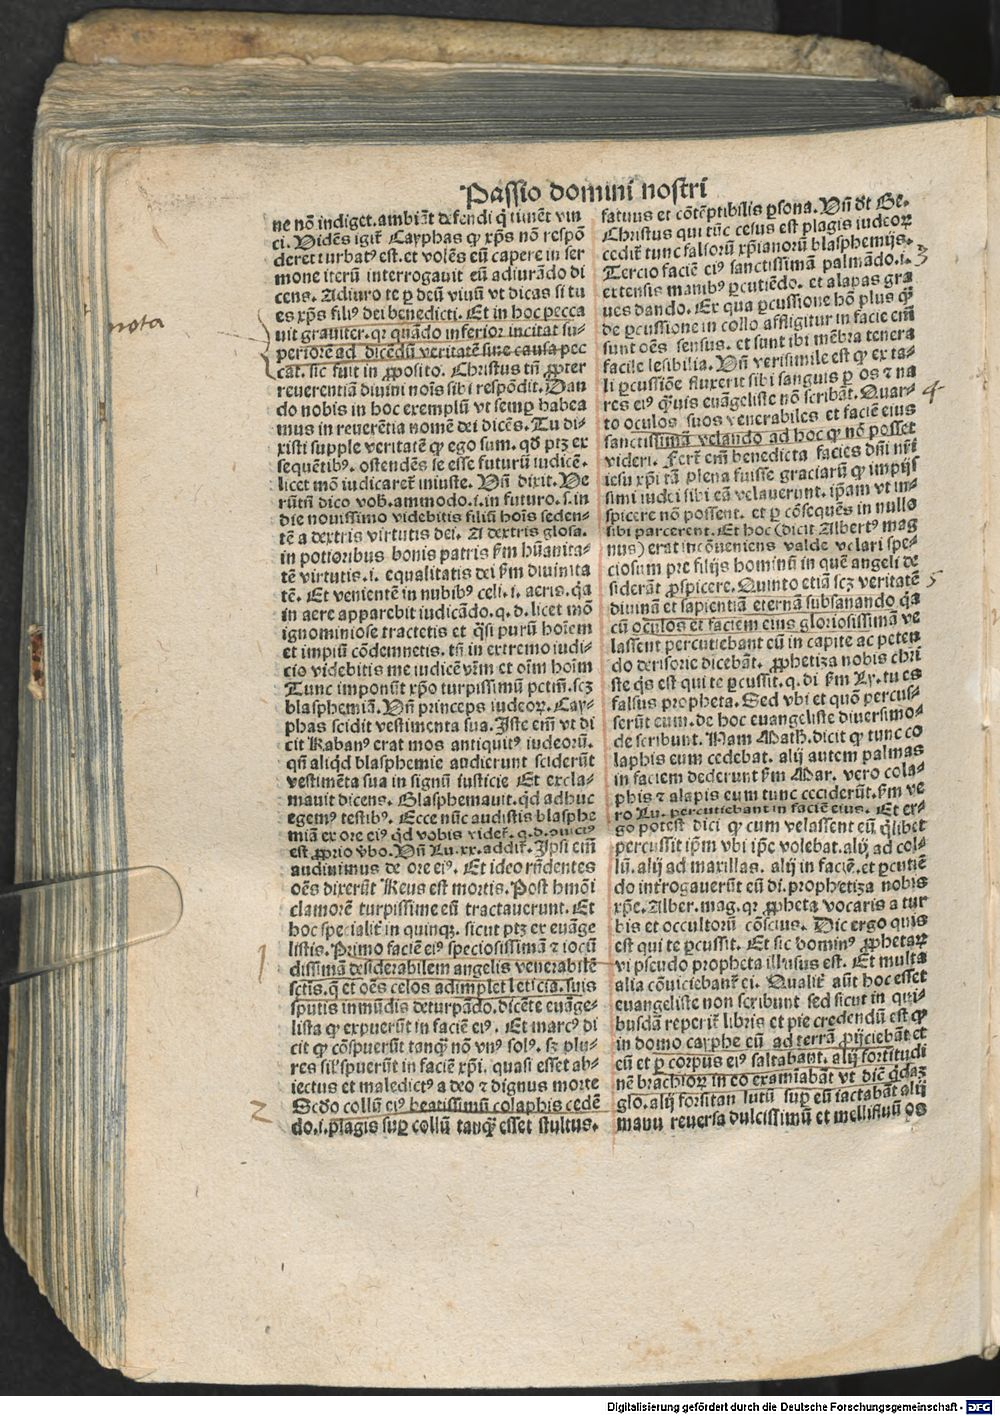 Passio domini nostri
ne nō indiget. ambiāt defendi q̄ timēt vin
ci. Vidēs igit᷑ Cayphas qꝫ xp̄s nō respō
deret turbatꝰ est. et volēs eū capere in ser
mone iterū interrogauit eū adiurādo di
cens. Adiuro te ꝑ deū viuū vt dicas si tu
es xp̄s filiꝰ dei benedicti. Et in hoc pecca
uit grauiter. qꝛ quādo inferior incitat su⸗
periorē ad dicēdū veritatē sine causa pec
cat. sic fuit in ꝓposito. Christus tn̄ ꝓpter
reuerentiā diuini noīs sibi respōdit. Dan
do nobis in hoc exemplū vt semꝑ habea
mus in reuerētia nomē dei dicēs. Tu di⸗
xisti supple veritatē qꝫ ego sum. qd̄ ptꝫ ex
sequētibꝰ. ostendēs se esse futurū iudicē.
licet mō iudicaret᷑ iniuste. Vn̄ dixit. Ve
rūtn̄ dico vob̄. ammodo .i. in futuro .s. in
die nouissimo videbitis filiū hoīs seden⸗
tē a dextris virtutis dei. A dextris glosa.
in potioribus bonis patris ẜm hūanita⸗
tē virtutis .i. equalitatis dei ẜm diuinita
tē. Et venientē in nubibꝰ celi .i. aeris. q̄a
in aere apparebit iudicādo. q. d. licet mō
ignominiose tractetis et q̄si purū hoīem
et impiū cōdemnetis. tn̄ in extremo iudi⸗
cio videbitis me iudicē vr̄m et oīm hoīm
Tunc imponūt xp̄o turpissimū pctm̄. scꝫ
blasphemiā. Vn̄ princeps iudeoꝝ. Cay⸗
phas scidit vestimenta sua. Iste em̄ vt di
cit Rabanꝰ erat mos antiquitꝰ iudeorū.
qn̄ aliqd̄ blasphemie audierunt sciderūt
vestimēta sua in signū iusticie Et excla⸗
mauit dicens. Blasphemauit. qd̄ adhuc
egemꝰ testibꝰ. Ecce nūc audistis blasphe
miā ex ore eiꝰ qd̄ vobis videt᷑. q. d.
est ꝓprio v̄bo. Vn̄ Lu. xx. addit᷑. Ipsi em̄
audiuimus de ore eiꝰ. Et ideo rn̄dentes
oēs dixerūt Reus est mortis. Post hmōi
clamorē turpissime eū tractauerunt. Et
hoc specialit᷑ in quinqꝫ. sicut ptꝫ ex euāge
listis. Primo faciē eiꝰ speciosissimā ⁊ iocū
dissimā desiderabilem angelis venerabilē
sctīs. q̄ et oēs celos adimplet leticia. suis
sputis inmūdis deturpādo. dicēte euāge⸗
lista qꝫ expuerūt in faciē eiꝰ. Et marcꝰ di
cit qꝫ cōspuerūt tanqꝫ̄ nō vnꝰ solꝰ. sꝫ plu⸗
res sil̄ spuerūt in faciē xp̄i. quasi esset ab⸗
iectus et maledictꝰ a deo ⁊ dignus morte
Scd̄o collū eiꝰ beatissimū colaphis cedē
do .i. plagis suꝑ collū tanqꝫ̄ esset stultus.
fatuus et cōtēptibilis ꝑsona. Vn̄ dt̄ Be.
Christus qui tūc cesus est plagis iudeoꝝ
cedit᷑ tunc falsorū xp̄ianorū blasphemijs.
Tercio faciē eiꝰ sanctissimā palmādo .i.
extensis manibꝰ ꝑcutiēdo. et alapas gra
ues dando. Ex qua ꝑcussione hō plus qꝫ̄
de ꝑcussione in collo affligitur in facie em̄
sunt oēs sensus. et sunt ibi mēbra tenera
facile lesibilia. Vn̄ verisimile est qꝫ ex ta⸗
li ꝑcussiōe fluxerit sibi sanguis ꝑ os ⁊ na
res eiꝰ qꝫ̄uis euāgeliste nō scribāt. Quar⸗
to oculos suos venerabiles et faciē eius
sanctissimā velando ad hoc qꝫ nō posset
videri. Fert᷑ em̄ benedicta facies dn̄i nr̄i
iesu xp̄i tā plena fuisse graciarū qꝫ impijs
simi iudei sibi eā velauerunt. ip̄am vt in⸗
spicere nō possent. et ꝑ cōsequēs in nullo
sibi parcerent. Et hoc (dicit Albertꝰ mag
nus) erat incōueniens valde velari spe⸗
ciosum pre filijs hominū in quē angeli de
siderāt ꝓspicere. Quinto etiā scꝫ veritatē
diuinā et sapientiā eternā subsanando q̄a
cū oculos et faciem eius gloriosissimā ve
lassēnt percutiebant eū in capite ac peten
do derisorie dicebāt. ꝓphetiza nobis chri
ste q̄s est qui te ꝑcussit. q. di ẜm Ly. tu es
falsus propheta. Sed vbi et quō ꝑercus⸗
serūt eum. de hoc euangeliste diuersimo⸗
de scribunt. Nam Math. dicit qꝫ tunc co
laphis eum cedebāt. alij autem palmas
in faciem dederunt ẜm Mar. vero cola⸗
phis ⁊ alapis eum tunc ceciderūt. ẜm ve
ro Lu. percutiebant in faciē eius. Et er⸗
go potest dici qꝫ cum velassent eū q̄libet
percussit ip̄m vbi ip̄e volebat. alij ad col⸗
lū. alij ad maxillas. alij in faciē. et ꝑcutiē
do int᷑rogauerūt eū di. prophetiza nobis
xp̄e. Alber. mag. qꝛ ꝓpheta vocaris a tur
bis et occultorū cōscius. Dic ergo quis
est qui te ꝑcussit. Et sic dominꝰ ꝓphetaꝝ
vt pseudo propheta illusus est. Et multa
alia cōuiciebant᷑ ei. Qualit᷑ aūt hoc esset
euangeliste non scribunt sed sicut in qui⸗
busdā reperit᷑ libris et pie credendū est qꝫ
in domo cayphe eū ad terrā ꝓijciebāt et
eū et ꝑ corpus eiꝰ saltabant. alij fortitudi
nē brachioꝝ in eo examinabāt vt diē q̄daꝫ
glo. alij forsitan lutū suꝑ eū iactabāt alij
manu reuersa dulcissimū et mellifluū os
nota
1
2
3
4
5
Digitalisierung gefördert durch die Deutsche Forschungsgemeinschaft - DFG